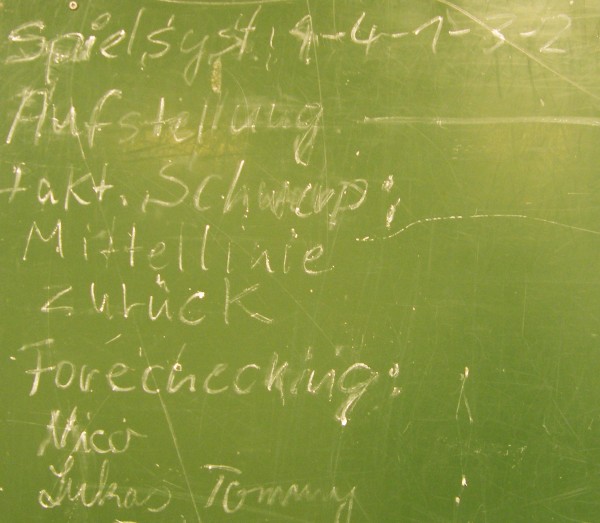 Spielsyst: 1-4-1-3-2
Aufstellung
takt. Schwerp:
Mittellinie
zurück
Forechecking:
Nico
Lukas Tommy